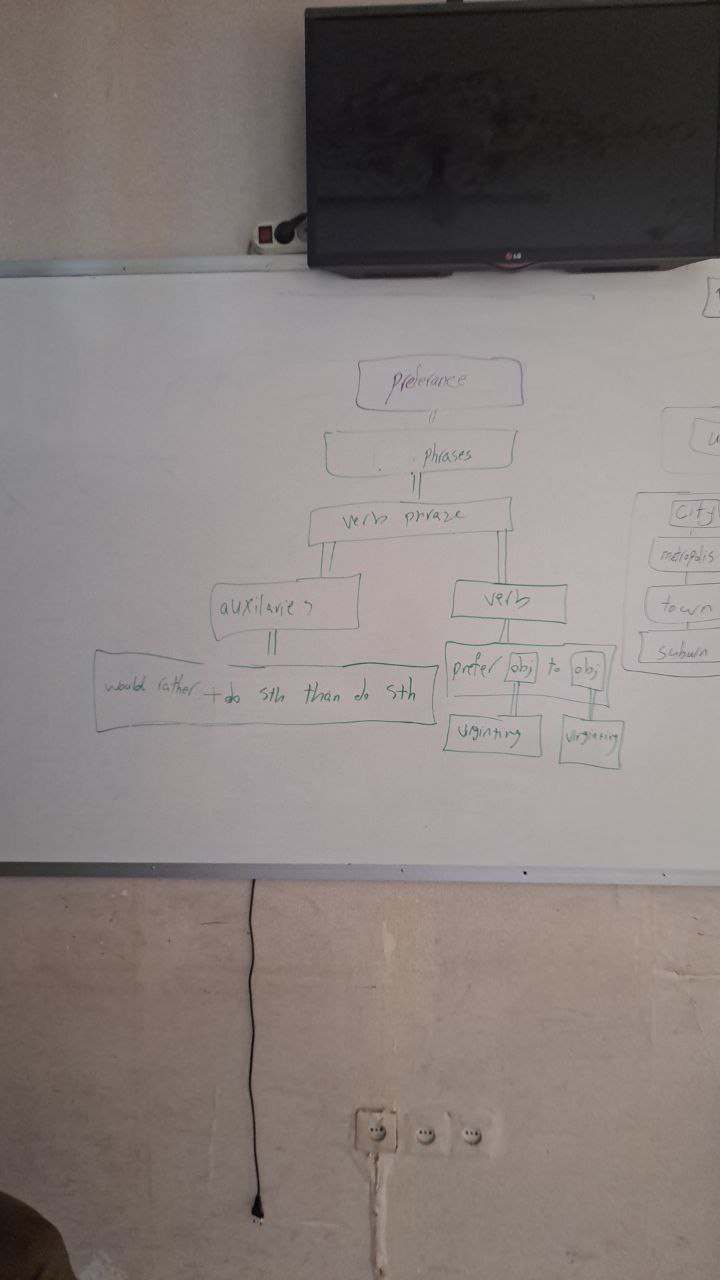 LG
preferance
phrases
verb phraze
auxilaries
verb
would rather + do sth than do sth
prefer obj to obj
city
metropolis
town
suburn